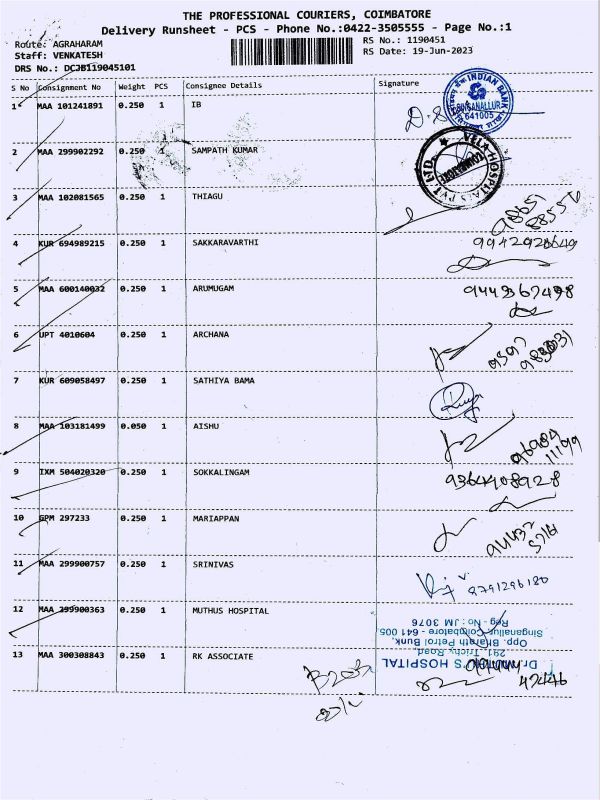 THE PROFESSIONAL COURIERS, COIMBATORE
Delivery Runsheet - PCS - Phone No.:0422-3505555 - Page No.:1
Route: AGRAHARAM
RS No.: 1190451
Staff: VENKATESH
RS Date: 19-Jun-2023
DRS No.: DCJB119045101
S No Consignment No Weight PCS Consignee Details Signature
1 MAA 101241891 0.250 1 IB
INDIAN BANK
SINGANALLUR
641005
2 MAA 299902292 0.250 1 SAMPATH KUMAR
HOSPITALS PVT. LTD.
3 MAA 102081565 0.250 1 THIAGU
4 KUR 694989215 0.250 1 SAKKARAVARTHI
5 MAA 600140032 0.250 1 ARUMUGAM
6 UPT 4010604 0.250 1 ARCHANA
7 KUR 609058497 0.250 1 SATHIYA BAMA
8 MAA 103181499 0.050 1 AISHU
9 IXM 504020320 0.250 1 SOKKALINGAM
9364408928
10 GPM 297233 0.250 1 MARIAPPAN
11 MAA 299900757 0.250 1 SRINIVAS
12 MAA 299900363 0.250 1 MUTHUS HOSPITAL
13 MAA 300308843 0.250 1 RK ASSOCIATE
Dr. MUTHU'S HOSPITAL
281, Trichy Road,
Opp. Bharath Petrol Bunk,
Singanallur, Coimbatore - 641 005.
Reg - No : JM 3076